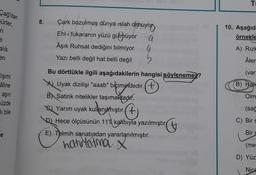 8. Çark bozulmuş dünya ıslah olmuyor
Ehl-i fukaranın yüzü gülmüyor
Âşık Ruhsat dediğini bilmiyor
Yazı belli değil hat belli değil
Bu dörtlükle ilgili aşağıdakilerden hangisi söylenemez?
A) Uyak dizilişi "aaab" biçimindedir.
B) Satirik nitelikler taşımaktadır.
C) Yarım uyak kullanılmıştır.
D) Hece ölçüsünün 11'li kalıbıyla yazılmıştır.
E) Telmih sanatından yararlanılmıştır.
hatırlatma X
10. Aşağıd
örnekle
A) Rızk
Âler
(var
B)
Olm
(sağ
C) Bir
Bir
D) Yüz